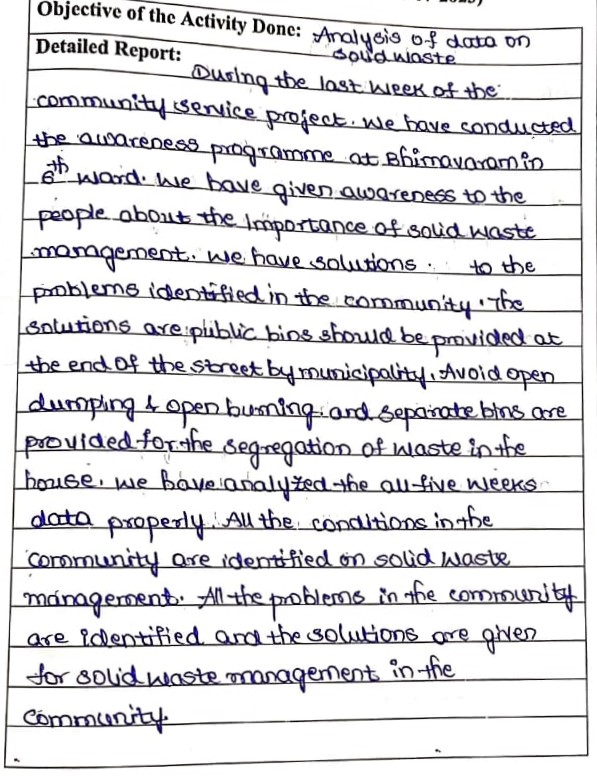 Objective of the Activity Done: Analysis of data on
solid waste
Detailed Report:
During the last week of the
community service project. We have conducted
the awareness programme at Bhimavaram in
6th ward. We have given awareness to the
people about the importance of solid waste
management. We have solutions. to the
problems identified in the community. The
solutions are public bins should be provided at
the end of the street by municipality. Avoid open
dumping & open burning and separate bins are
provided for the segregation of waste in the
house. We have analyzed the all five weeks
data properly. All the conditions in the
community are identified on solid waste
management. All the problems in the community
are identified and the solutions are given
for solid waste management in the
community.